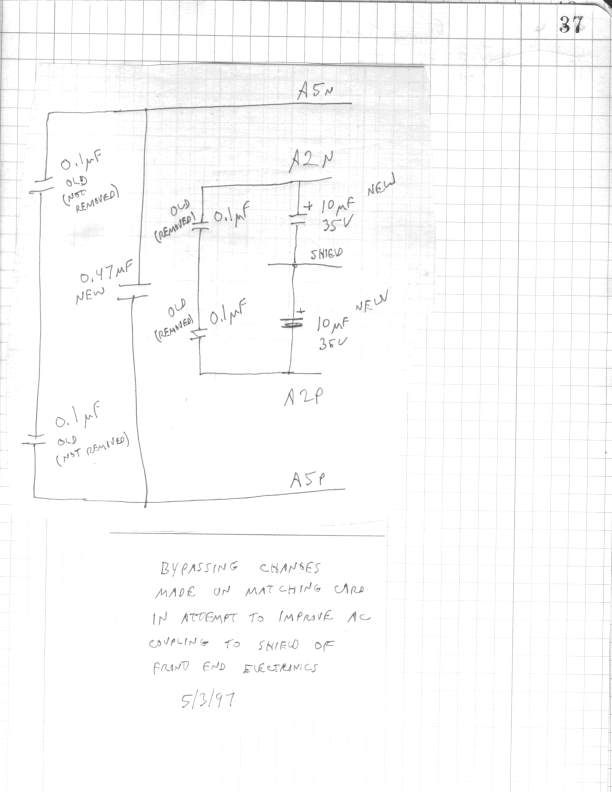 37
A5N
0.1µF
OLD
(NOT
REMOVED)
A2N
OLD
(REMOVED)
0.1µF
+ 10µF
35V
NEW
SHIELD
0.47µF
NEW
OLD
(REMOVED)
0.1µF
+
10µF
35V
NEW
A2P
0.1µF
OLD
(NOT REMOVED)
A5P
BYPASSING CHANGES
MADE ON MATCHING CARD
IN ATTEMPT TO IMPROVE AC
COUPLING TO SHIELD OF
FRONT END ELECTRONICS
5/3/97